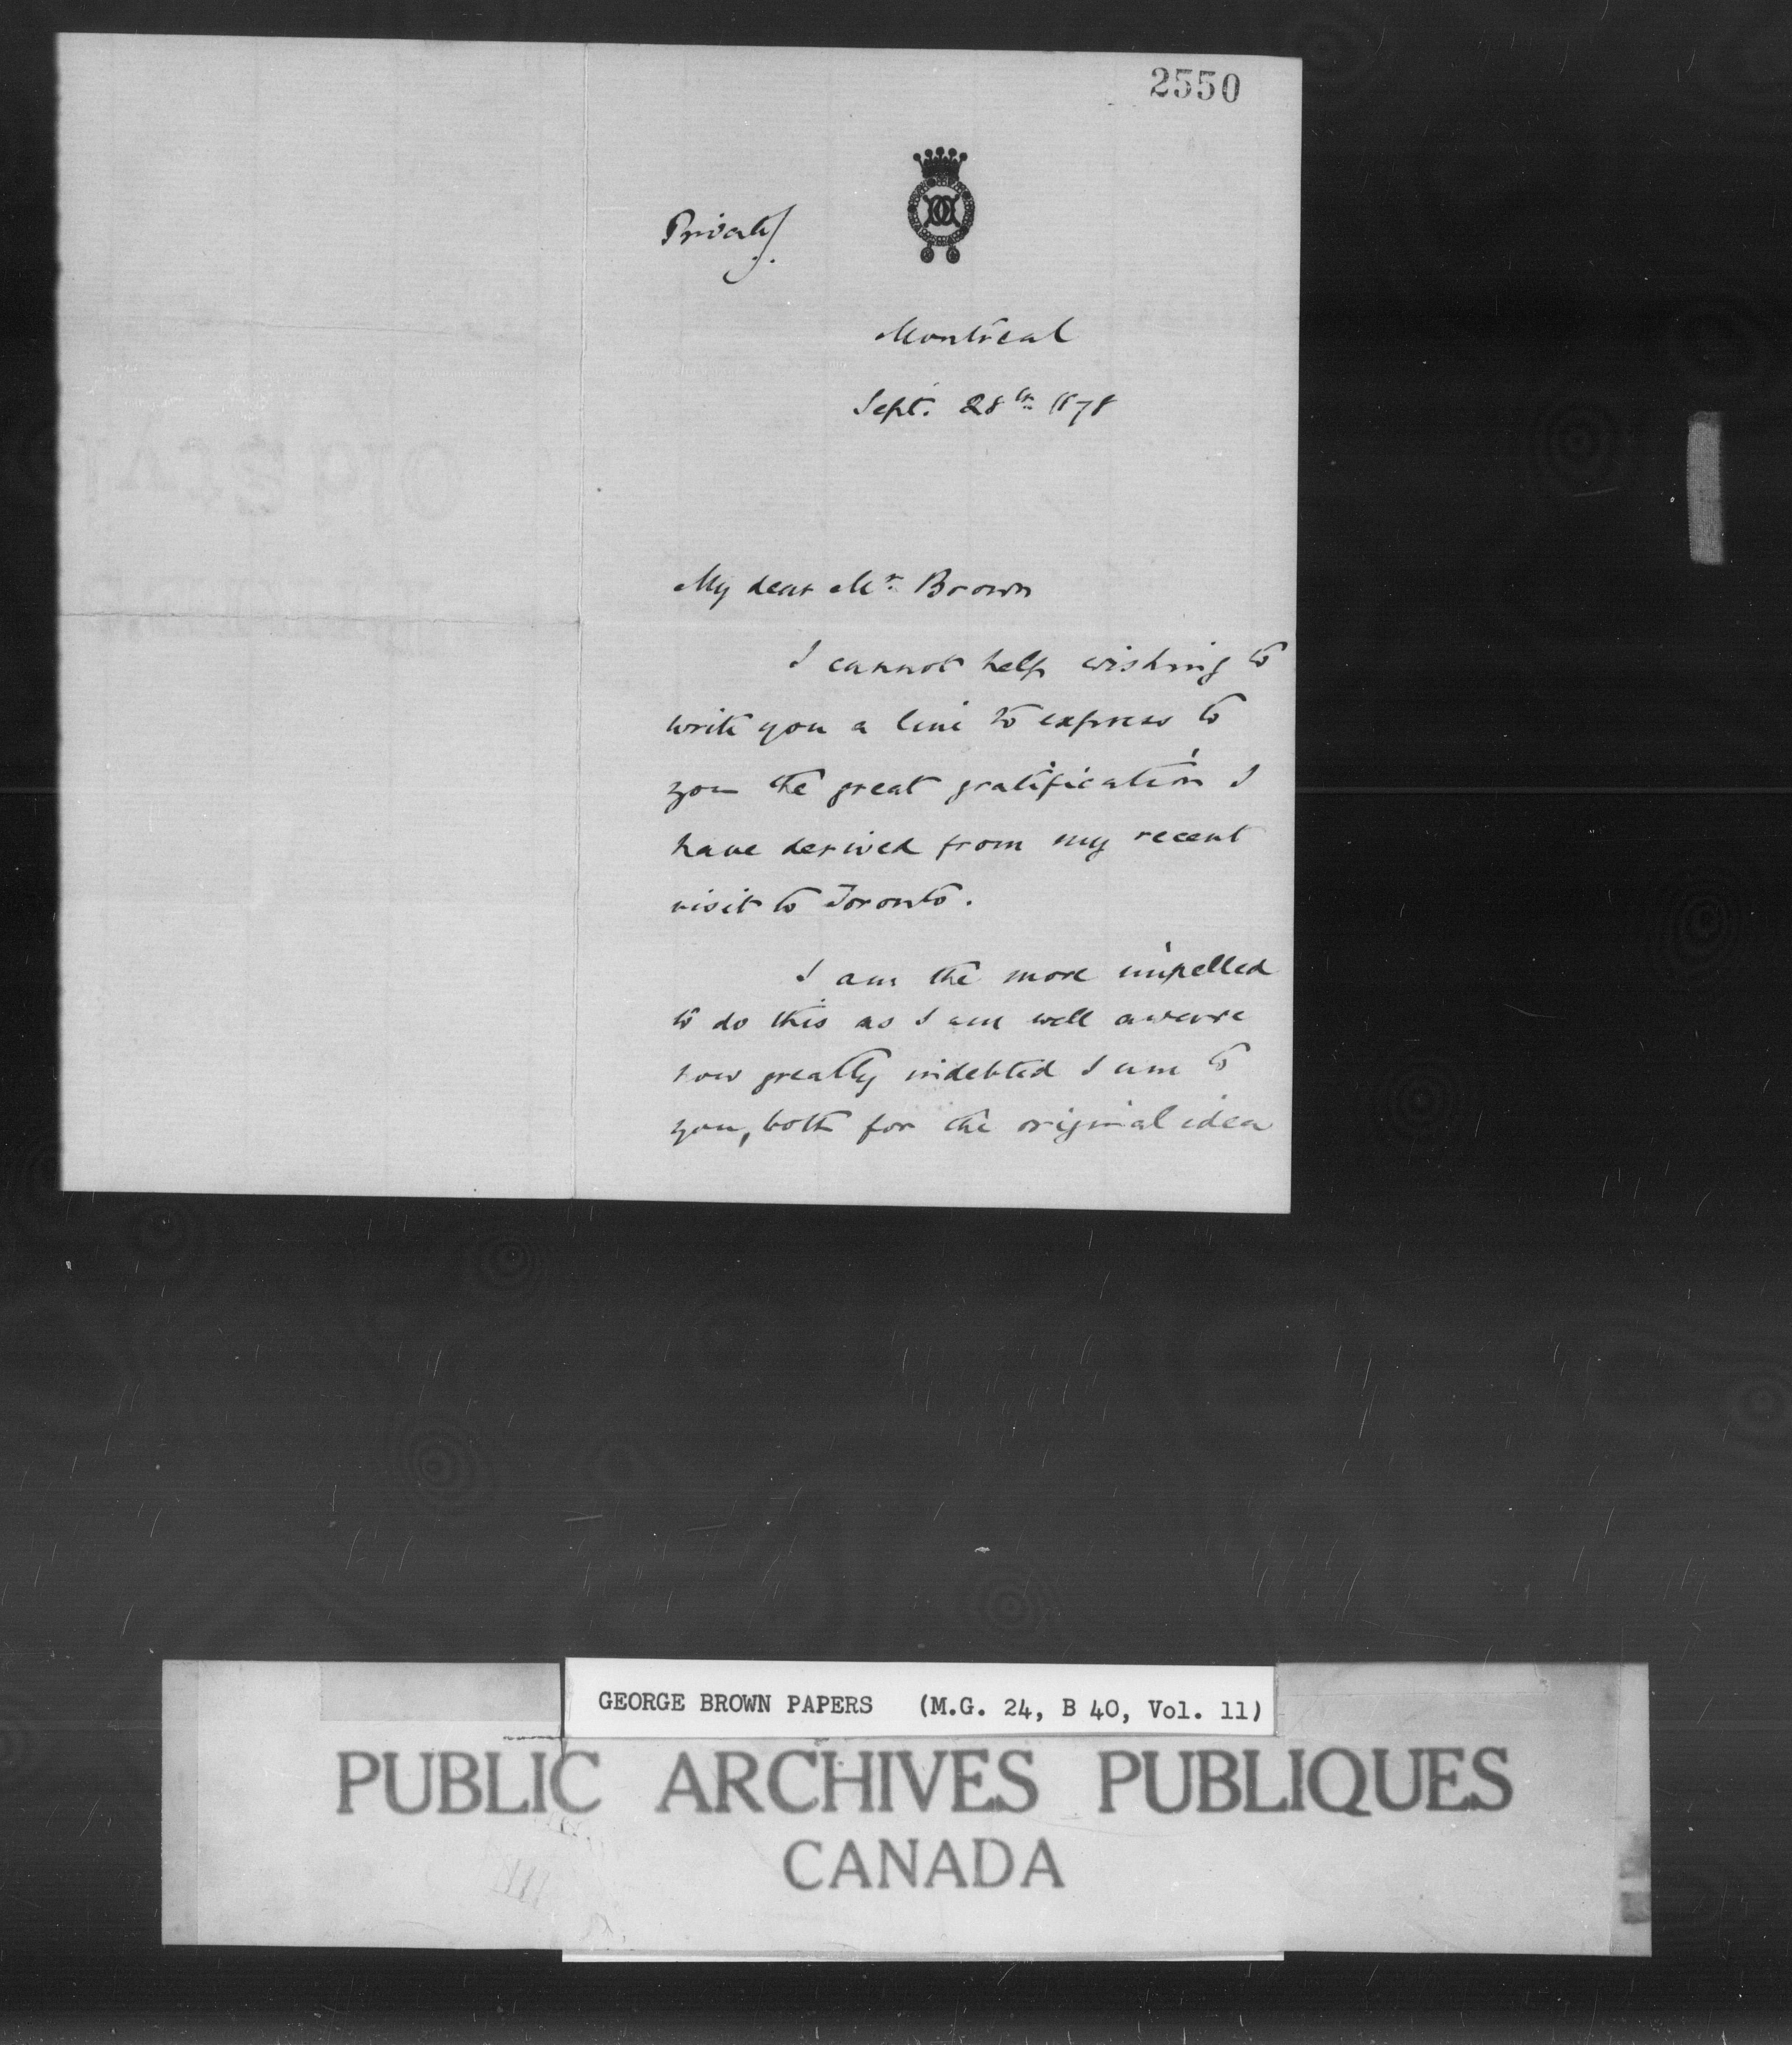 2550
Private
Montreal
Sept. 28th 1878
My dear Mr. Brown
I cannot help wishing to
write you a line to express to
you the great gratification I
have derived from my recent
visit to Toronto.
I am the more impelled
to do this as I am well aware
how greatly indebted I am to
you, both for the original idea
GEORGE BROWN PAPERS (M.G. 24, B 40, Vol. 11)
PUBLIC ARCHIVES PUBLIQUES
CANADA